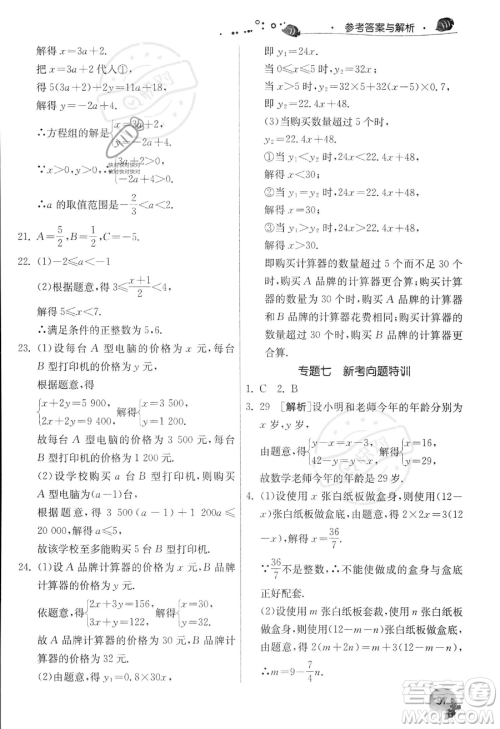 参考答案与解析
解得 x=3a+2.
把 x=3a+2代入①,
得 5(3a+2)+2y=11a+18.
解得 y=-2a+4.
∴方程组的解是{x=3a+2, y=-2a+4.
∵x>0,y>0,∴{3a+2>0, -2a+4>0.
∴a 的取值范围是-2/3<a<2.
21. A=5/2,B=1/2,C=-5.
22. (1)-2≤a<-1
(2)根据题意,得3≤(x+1)/2<4,
解得 5≤x<7.
∴满足条件的正整数为5,6.
23. (1)设每台 A 型电脑的价格为 x 元,每台
B 型打印机的价格为 y 元.
根据题意,得{x+y=5 900, 2x+2y=9 400,
解得{x=3 500, y=1 200.
故每台 A 型电脑的价格为 3 500 元,每台
B 型打印机的价格为 1 200 元.
(2)设学校购买 a 台 B 型打印机,则购买
A 型电脑为(a-1)台.
根据题意,得 3 500(a-1)+1 200a≤
20 000,解得 a≤5.
故该学校至多能购买 5 台 B 型打印机.
24. (1)设 A 品牌计算器的价格为 x 元,B 品
牌计算器的价格为 y 元.
依题意,得{2x+3y=156, 3x+y=122.
解得{x=30, y=32.
故 A 品牌计算器的价格为 30 元,B 品牌
计算器的价格为 32 元.
(2)由题意,得 y₁=0.8×30x,
即 y₁=24x.
当 0≤x≤5 时,y₂=32x;
当 x>5 时,y₂=32×5+32(x-5)×0.7,
即 y₂=22.4x+48.
(3)当购买数量超过 5 个时,
y₂=22.4x+48.
①当 y₁<y₂ 时,24x<22.4x+48,
解得 x<30.
②当 y₁=y₂ 时,24x=22.4x+48,
解得 x=30.
③当 y₁>y₂ 时,24x>22.4x+48,
解得 x>30.
即购买计算器的数量超过 5 个而不足
30 个时,购买 A 品牌的计算器更合算;购
买计算器的数量为 30 个时,购买 A 品牌
与 B 品牌的计算器花费相同;购买计算
器的数量超过 30 个时,购买 B 品牌的更
合算.
专题七 新考向题特训
1. C 2. B
3. 29 [解析] 设小明和老师今年的年龄分别为
x 岁,y 岁,
由题意,得{y-x=x-3, 42-y=y-x,解得{x=16, y=29.
故数学老师今年的年龄是 29 岁.
4. (1)设使用 x 张白纸板做盒身,则使用
(12-x)张白纸板做盒底.
由题意,得 2×2x=3(12-x),解得 x=36/7.
∵36/7 不是整数,∴不可能使做成的盒身与盒底
正好配套.
(2)设使用 m 张白纸板套裁,使用 n 张白
纸板做盒身,则使用(12-m-n)张白纸板
做盒底.由题意,得 2(m+2n)=m+3(12-m-n),
∴m=9-7/4n.